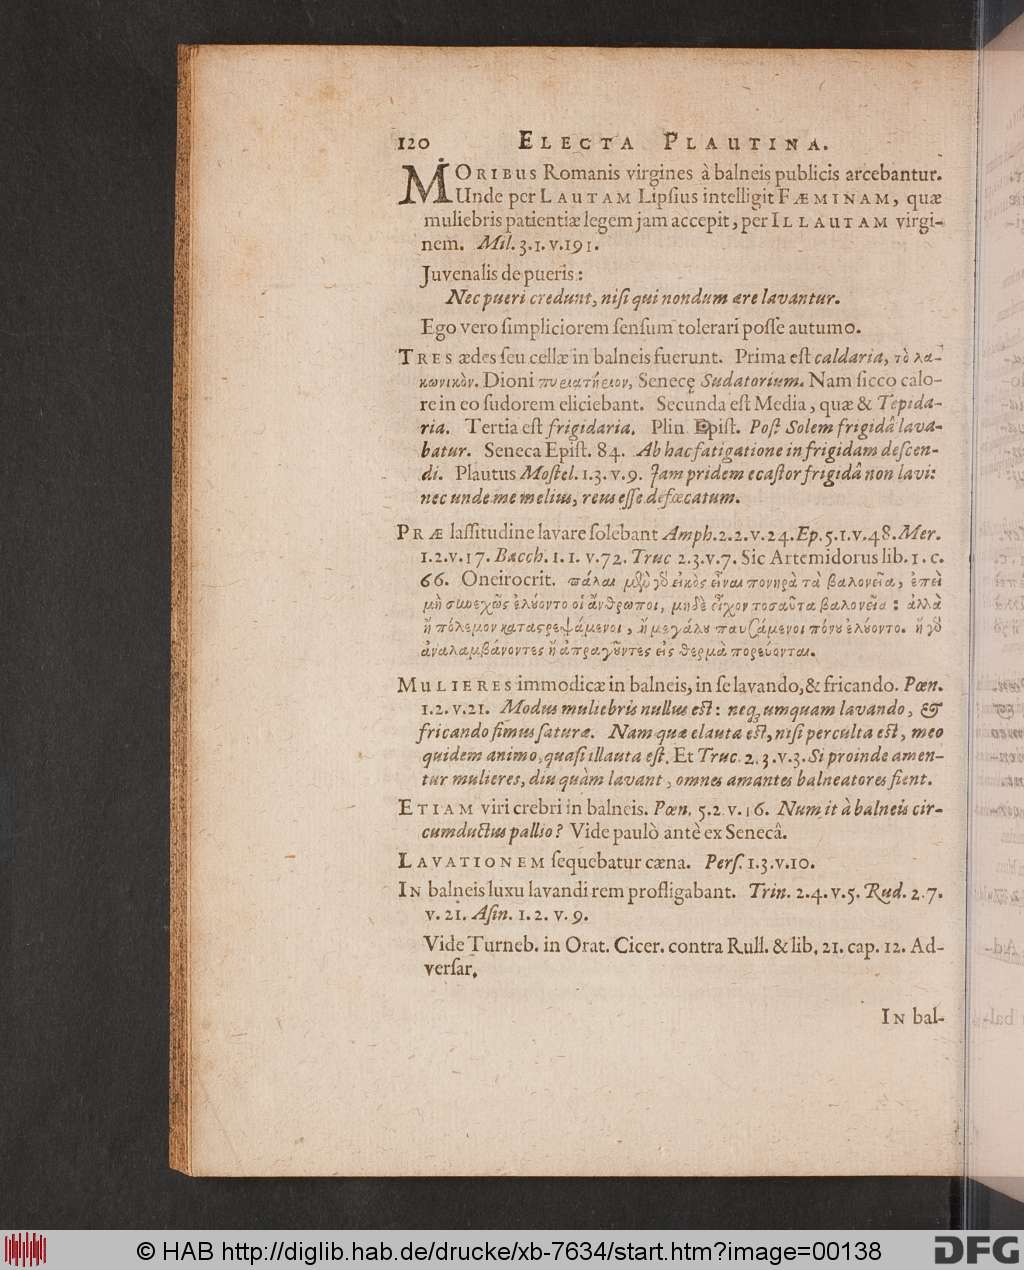 120 ELECTA PLAUTINA.
MORIBUS Romanis virgines à balneis publicis arcebantur.
Unde per LAUTAM Lipſius intelligit FÆMINAM, quæ
muliebris patientiæ legem jam accepit, per ILLAUTAM virgi-
nem. Mil. 3. 1. v. 191.
Juvenalis de pueris:
Nec pueri credunt, niſi qui nondum ære lavantur.
Ego vero ſimpliciorem ſenſum tolerari poſſe autumo.
TRES ædes ſeu cellæ in balneis fuerunt. Prima eſt caldaria, τὸ λα-
κωνικὸν. Dioni πυριατήριον, Senecę Sudatorium. Nam ſicco calo-
re in eo ſudorem eliciebant. Secunda eſt Media, quæ & Tepida-
ria. Tertia eſt frigidaria. Plin. Epiſt. Poſt Solem frigidâ lava-
batur. Seneca Epiſt. 84. Ab hac fatigatione in frigidam deſcen-
di. Plautus Moſtel. 1. 3. v. 9. Jam pridem ecaſtor frigidâ non lavi:
nec unde me melius, reus eſſe defœcatum.
PRÆ laſſitudine lavare ſolebant Amph. 2. 2. v. 24. Ep. 5. 1. v. 48. Mer.
1. 2. v. 17. Bacch. 1. 1. v. 72. Truc 2. 3. v. 7. Sic Artemidorus lib. 1. c.
66. Oneirocrit. πάλαι μὲν γὸ εἰκὸς εἶναι πονηρὰ τὰ βαλονεῖα, ἐπεὶ
μὴ συνεχῶς ἐλύοντο οἱ ἄνθρωποι, μηδὲ εἶχον τοσαῦτα βαλονεῖα: ἀλλὰ
ἢ πόλεμον καταςρεψάμενοι, ἢ μεγάλου παυσάμενοι πόνου ἐλύοντο. ἢ γὸ
ἀναλαμβάνοντες ἢ ἀπραγοῦντες εἰς θερμὰ πορεύονται.
MULIERES immodicæ in balneis, in ſe lavando, & fricando. Pœn.
1. 2. v. 21. Modus muliebris nullus eſt: neq; umquam lavando, &
fricando ſimus ſaturæ. Nam quæ elauta eſt, niſi perculta eſt, meo
quidem animo, quaſi illauta eſt. Et Truc. 2. 3. v. 3. Si proinde amen-
tur mulieres, diu quàm lavant, omnes amantes balneatores ſient.
ETIAM viri crebri in balneis. Pœn. 5. 2. v. 16. Num it à balneis cir-
cumductus pallio? Vide paulò antè ex Senecâ.
LAVATIONEM ſequebatur cæna. Perſ. 1. 3. v. 10.
IN balneis luxu lavandi rem profligabant. Trin. 2. 4. v. 5. Rud. 2. 7.
v. 21. Aſin. 1. 2. v. 9.
Vide Turneb. in Orat. Cicer. contra Rull. & lib. 21. cap. 12. Ad-
verſar.
IN bal-
© HAB http://diglib.hab.de/drucke/xb-7634/start.htm?image=00138
DFG